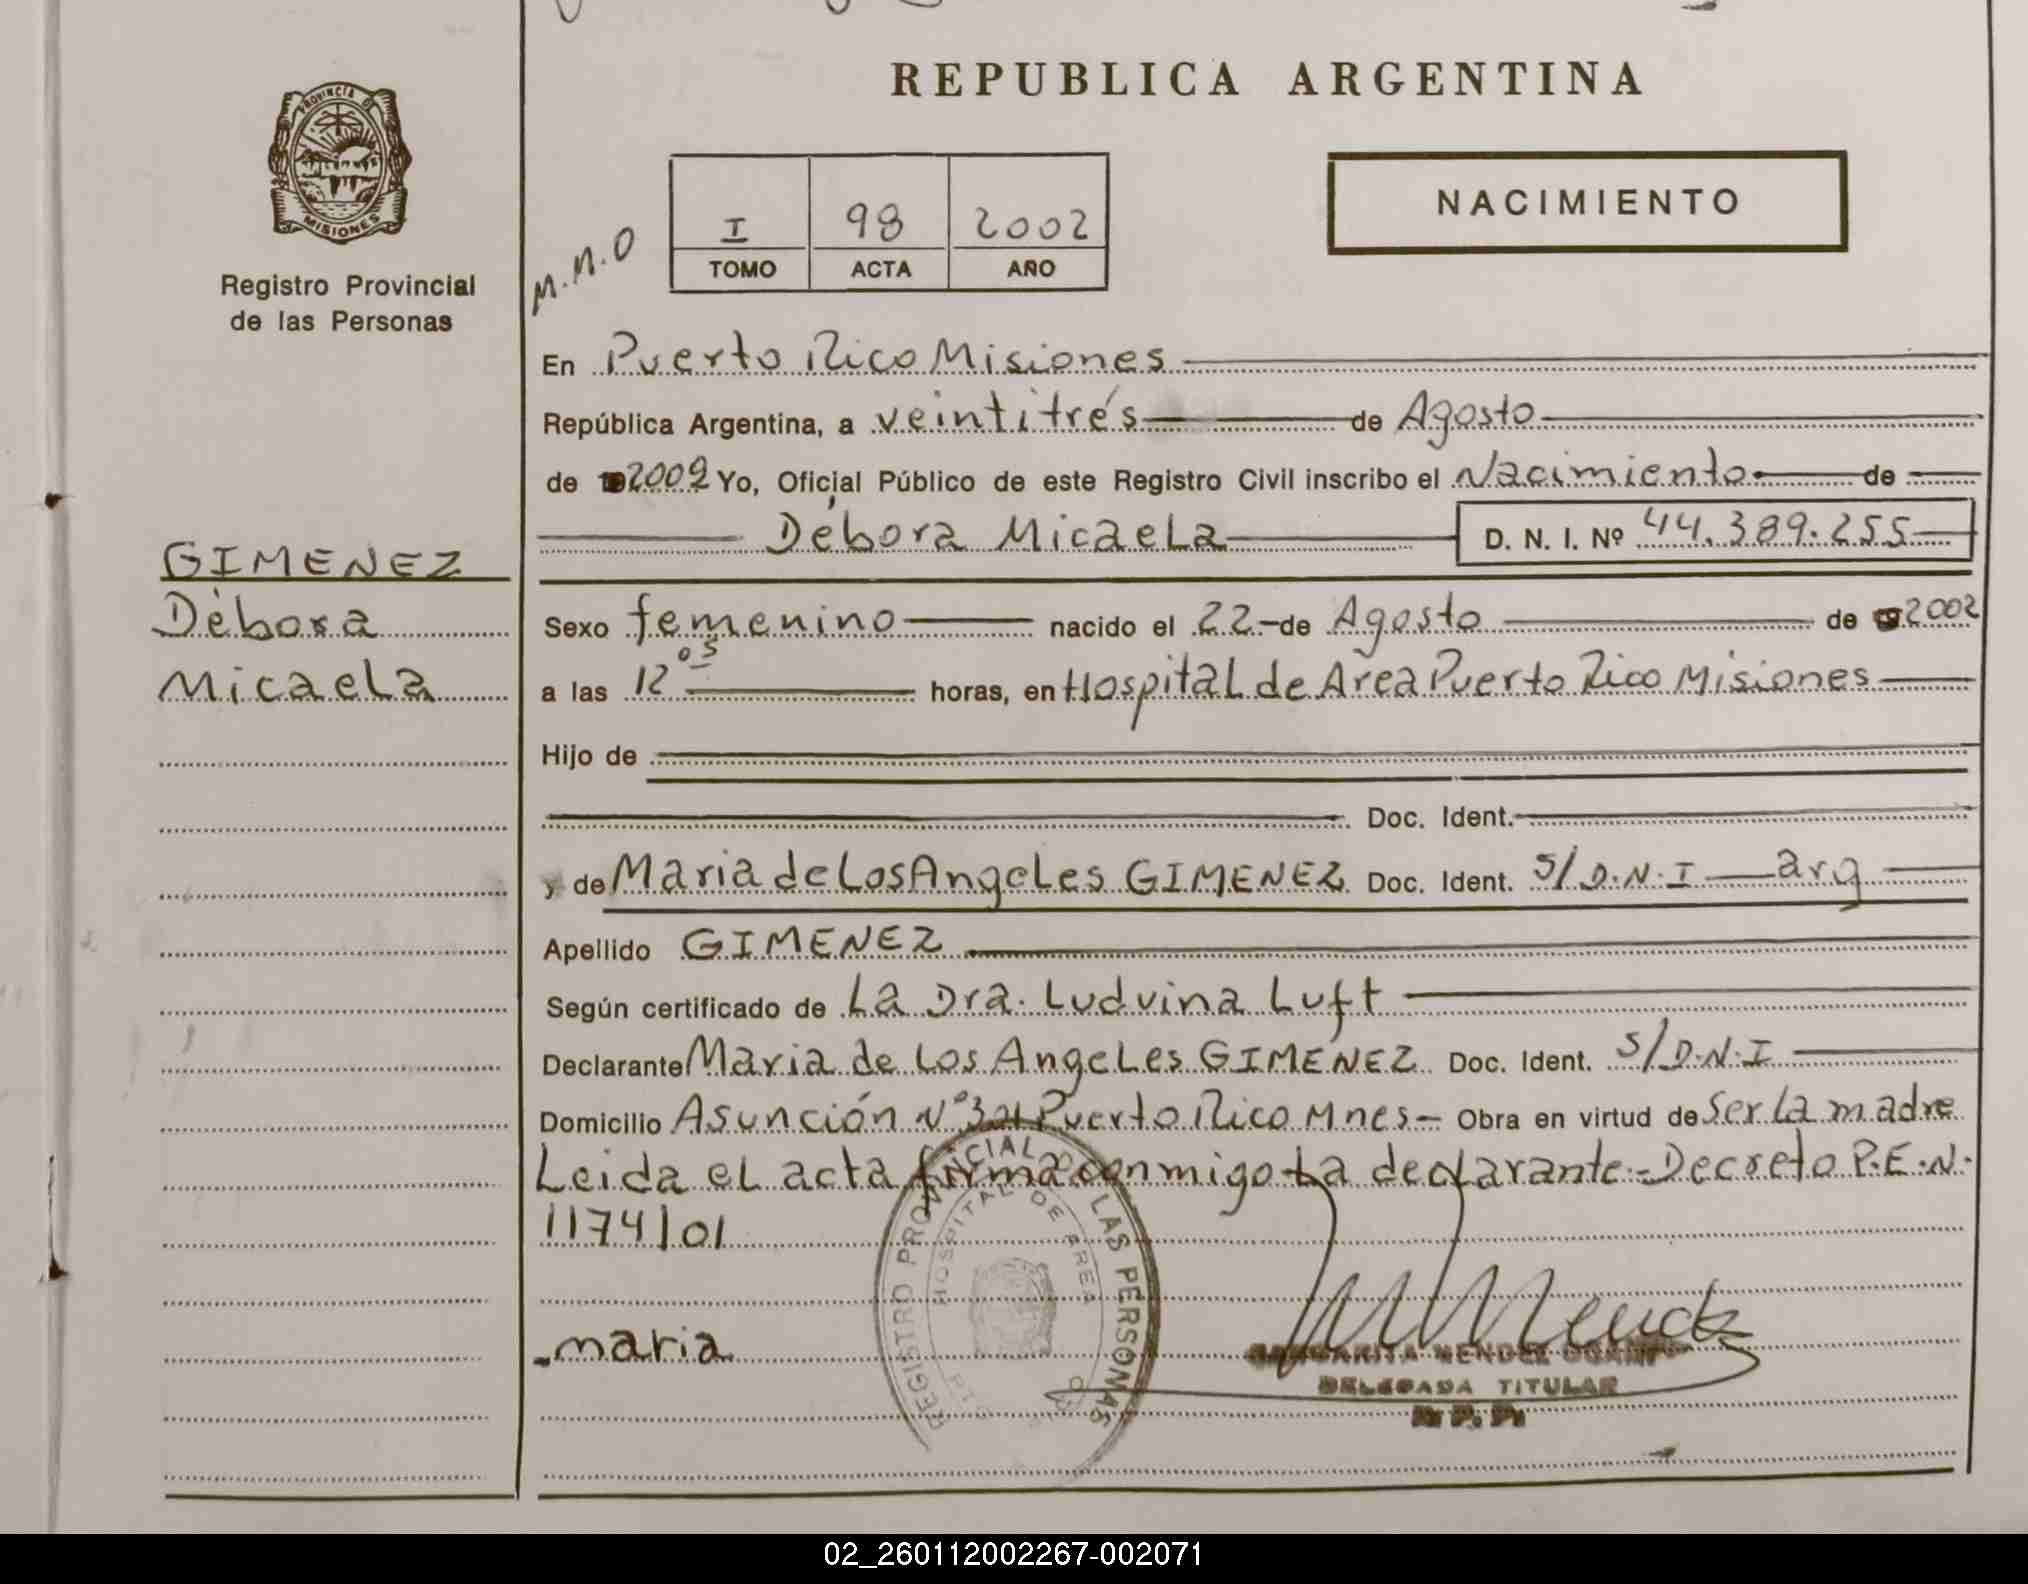 REPUBLICA ARGENTINA
PROVINCIA DE
MISIONES
Registro Provincial
de las Personas
M.M.O
I 98 2002
TOMO ACTA AÑO
NACIMIENTO
En Puerto Rico Misiones
República Argentina, a veintitrés de Agosto
de 2002 Yo, Oficial Público de este Registro Civil inscribo el Nacimiento de
Débora Micaela D. N. I. Nº 44.389.255
GIMENEZ
Débora
Micaela
Sexo femenino nacido el 22 - de Agosto de 2002
a las 12 05 horas, en Hospital de Area Puerto Rico Misiones
Hijo de
Doc. Ident.
y de Maria de Los Angeles GIMENEZ Doc. Ident. S/D.N.I arg
Apellido GIMENEZ
Según certificado de La Dra. Ludvina Luft
Declarante Maria de Los Angeles GIMENEZ Doc. Ident. S/D.N.I
Domicilio Asunción Nº 301 Puerto Rico Mnes - Obra en virtud de Ser La madre
Leida el acta firma conmigo La declarante - Decreto P.E.N.
1174/01
REGISTRO PROVINCIAL DE LAS PERSONAS
HOSPITAL DE AREA
maria
DELEGADA TITULAR
R. P. P.
02_260112002267-002071